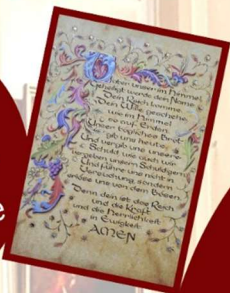 unser im Himmel
Geheiligt werde dein Name
Dein Reich komme
Dein Wille geschehe
wie im Himmel
so auf Erden
Unser tägliches Brot
gib uns heute
Und vergib uns unsere
Schuld wie auch wir
vergeben unsern Schuldigern
Und führe uns nicht in
Versuchung, sondern
erlöse uns von dem Bösen.
Denn dein ist das Reich
und die Kraft
und die Herrlichkeit
in Ewigkeit
AMEN
e